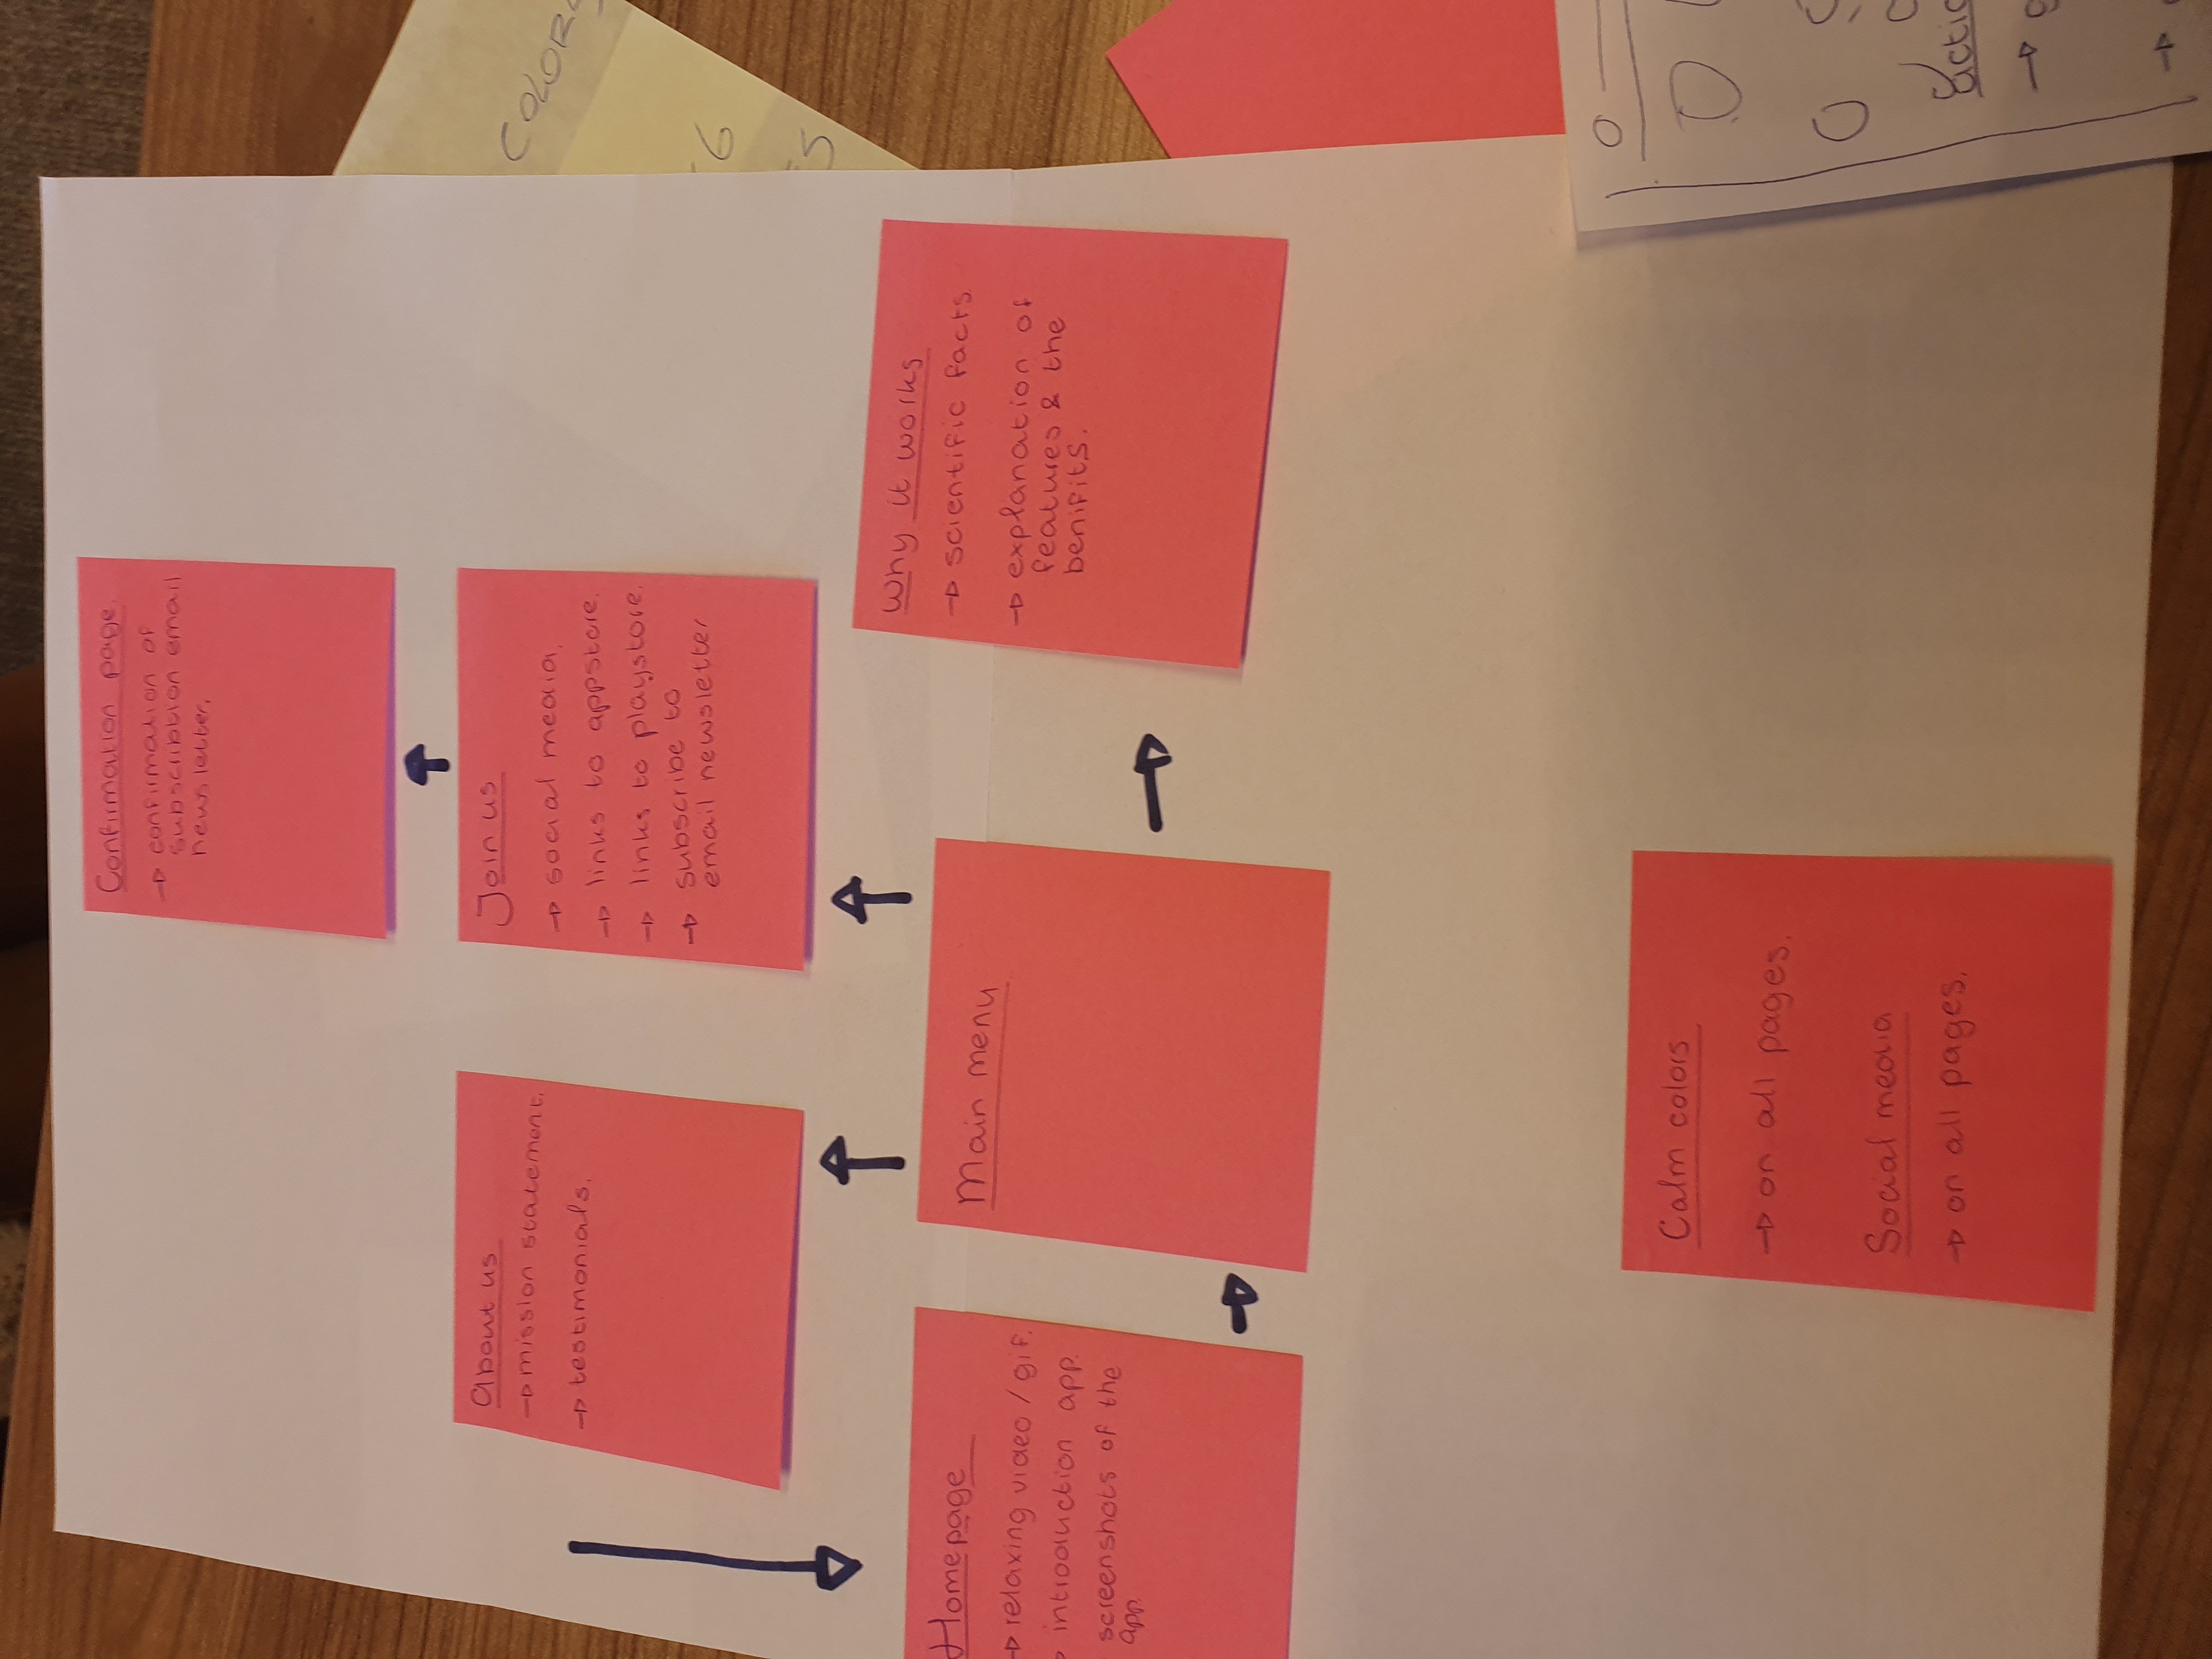 Confirmation page.
→ confirmation of
subscribtion email
newsletter.
About us
→ mission statement.
→ testimonials.
Join us
→ social media.
→ links to appstore.
→ links to playstore.
→ subscribe to
email newsletter
COLOR
6
5
Homepage
→ relaxing video / gif.
→ introduction app.
screenshots of the
app.
Main menu
Why it works
→ scientific facts.
→ explanation of
features & the
benifits.
Calm colors
→ on all pages.
Social media
→ on all pages.